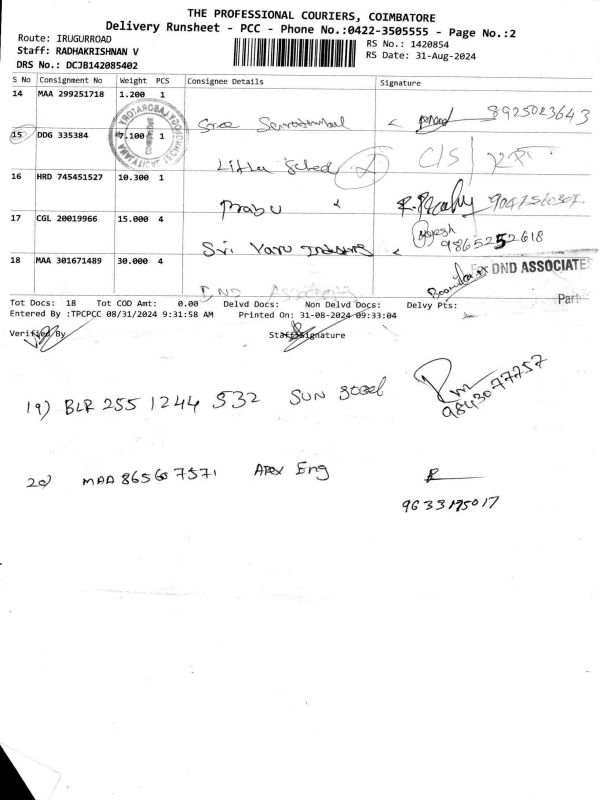 THE PROFESSIONAL COURIERS, COIMBATORE
Delivery Runsheet - PCC - Phone No.:0422-3505555 - Page No.:2
Route: IRUGURROAD
RS No.: 1420854
Staff: RADHAKRISHNAN V
RS Date: 31-Aug-2024
DRS No.: DCJB142085402
S No Consignment No Weight PCS Consignee Details Signature
14 MAA 299251718 1.200 1
8925023643
15 DDG 335384 7.100 1
C/S
16 HRD 745451527 10.300 1
Prabu
17 CGL 20019966 15.000 4
Sri Varu
9865252618
18 MAA 301671489 30.000 4
DND ASSOCIATES
DND Associates
Part
Tot Docs: 18 Tot COD Amt: 0.00 Delvd Docs: Non Delvd Docs: Delvy Pts:
Entered By :TPCPCC 08/31/2024 9:31:58 AM Printed On: 31-08-2024 09:33:04
Verified By Staff Signature
19) BLR 255 1244 532 SUN Steel
9843077757
20) MAA 865607571 APEX Eng